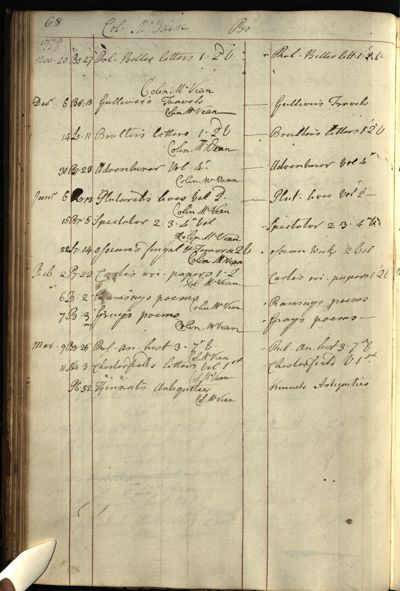 68 Col. McVean
1779
Nov. 20 Rol. Belles letters 1. 2 V Rhol. Belles lett. 1. 2 V
Colin McVean
Decr 6 Gullivers Travels Gullivers Travels
Colin McVean
14 11 Boulters letters 1. 2 V Boulters letters 1. 2 V
Colin McVean
30 23 Adventurer Vol 4. Adventurer Vol 4
Colin McVean
6 Plutarcks lives Vol 2. Plut. lives Vol 2
Colin McVean
15 5 Spectator 2. 3. 4 Vol Spectator 2. 3. 4 V
Colin McVean
14 Ossians fingal & Temora 2 V Ossian Works 2 Vol
Colin McVean
Feb. 2 22 Cartes ori. papers 1. 2 Cartes ori. papers 1. 2 V
Col. McVean
6 2 Ramsays poems Ramsays poems
Colin McVean
7 3 Grays poems Grays poems
Colin McVean
Mar. 9 26 Rol. An. hist 3. 7 V Rol. An. hist 3. 7 V
Col. McVean
11 3 Chesterfields letters Vol 1st Chesterfields V 1st
Col. McVean
52 Kennets Antiquities Kennets Antiquities
Col. McVean